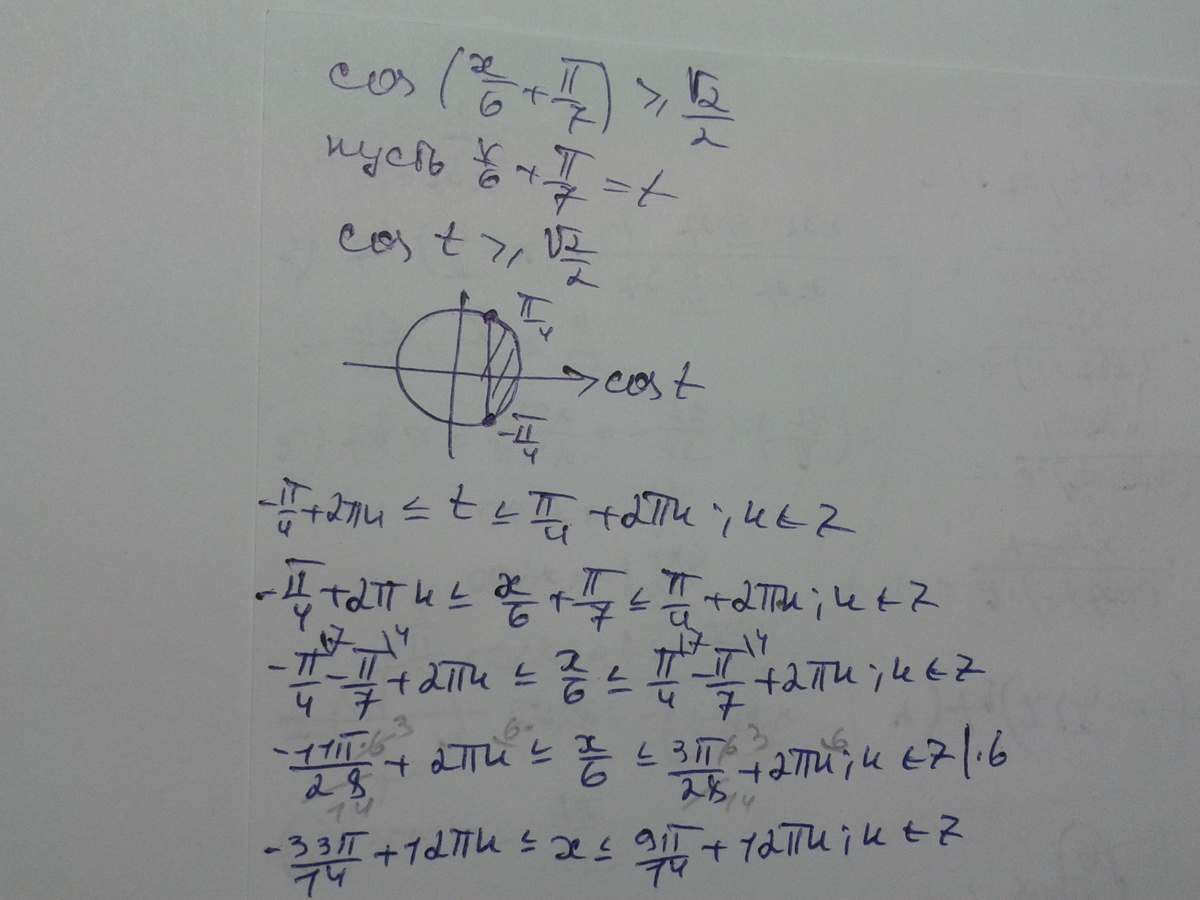 cos (x/6 + π/7) ≥ √2/2
пусть x/6 + π/7 = t
cos t ≥ √2/2
π/4
cos t
-π/4
-π/4 + 2πк ≤ t ≤ π/4 + 2πк; к ∈ Z
-π/4 + 2πк ≤ x/6 + π/7 ≤ π/4 + 2πк; к ∈ Z
-π/4 \7 - π/7 \4 + 2πк ≤ x/6 ≤ π/4 \7 - π/7 \4 + 2πк; к ∈ Z
-11π·6 3/28 14 + 2πк·6 ≤ x/6 ≤ 3π·6 3/28 14 + 2πк·6; к ∈ Z |·6
-33π/14 + 12πк ≤ x ≤ 9π/14 + 12πк; к ∈ Z